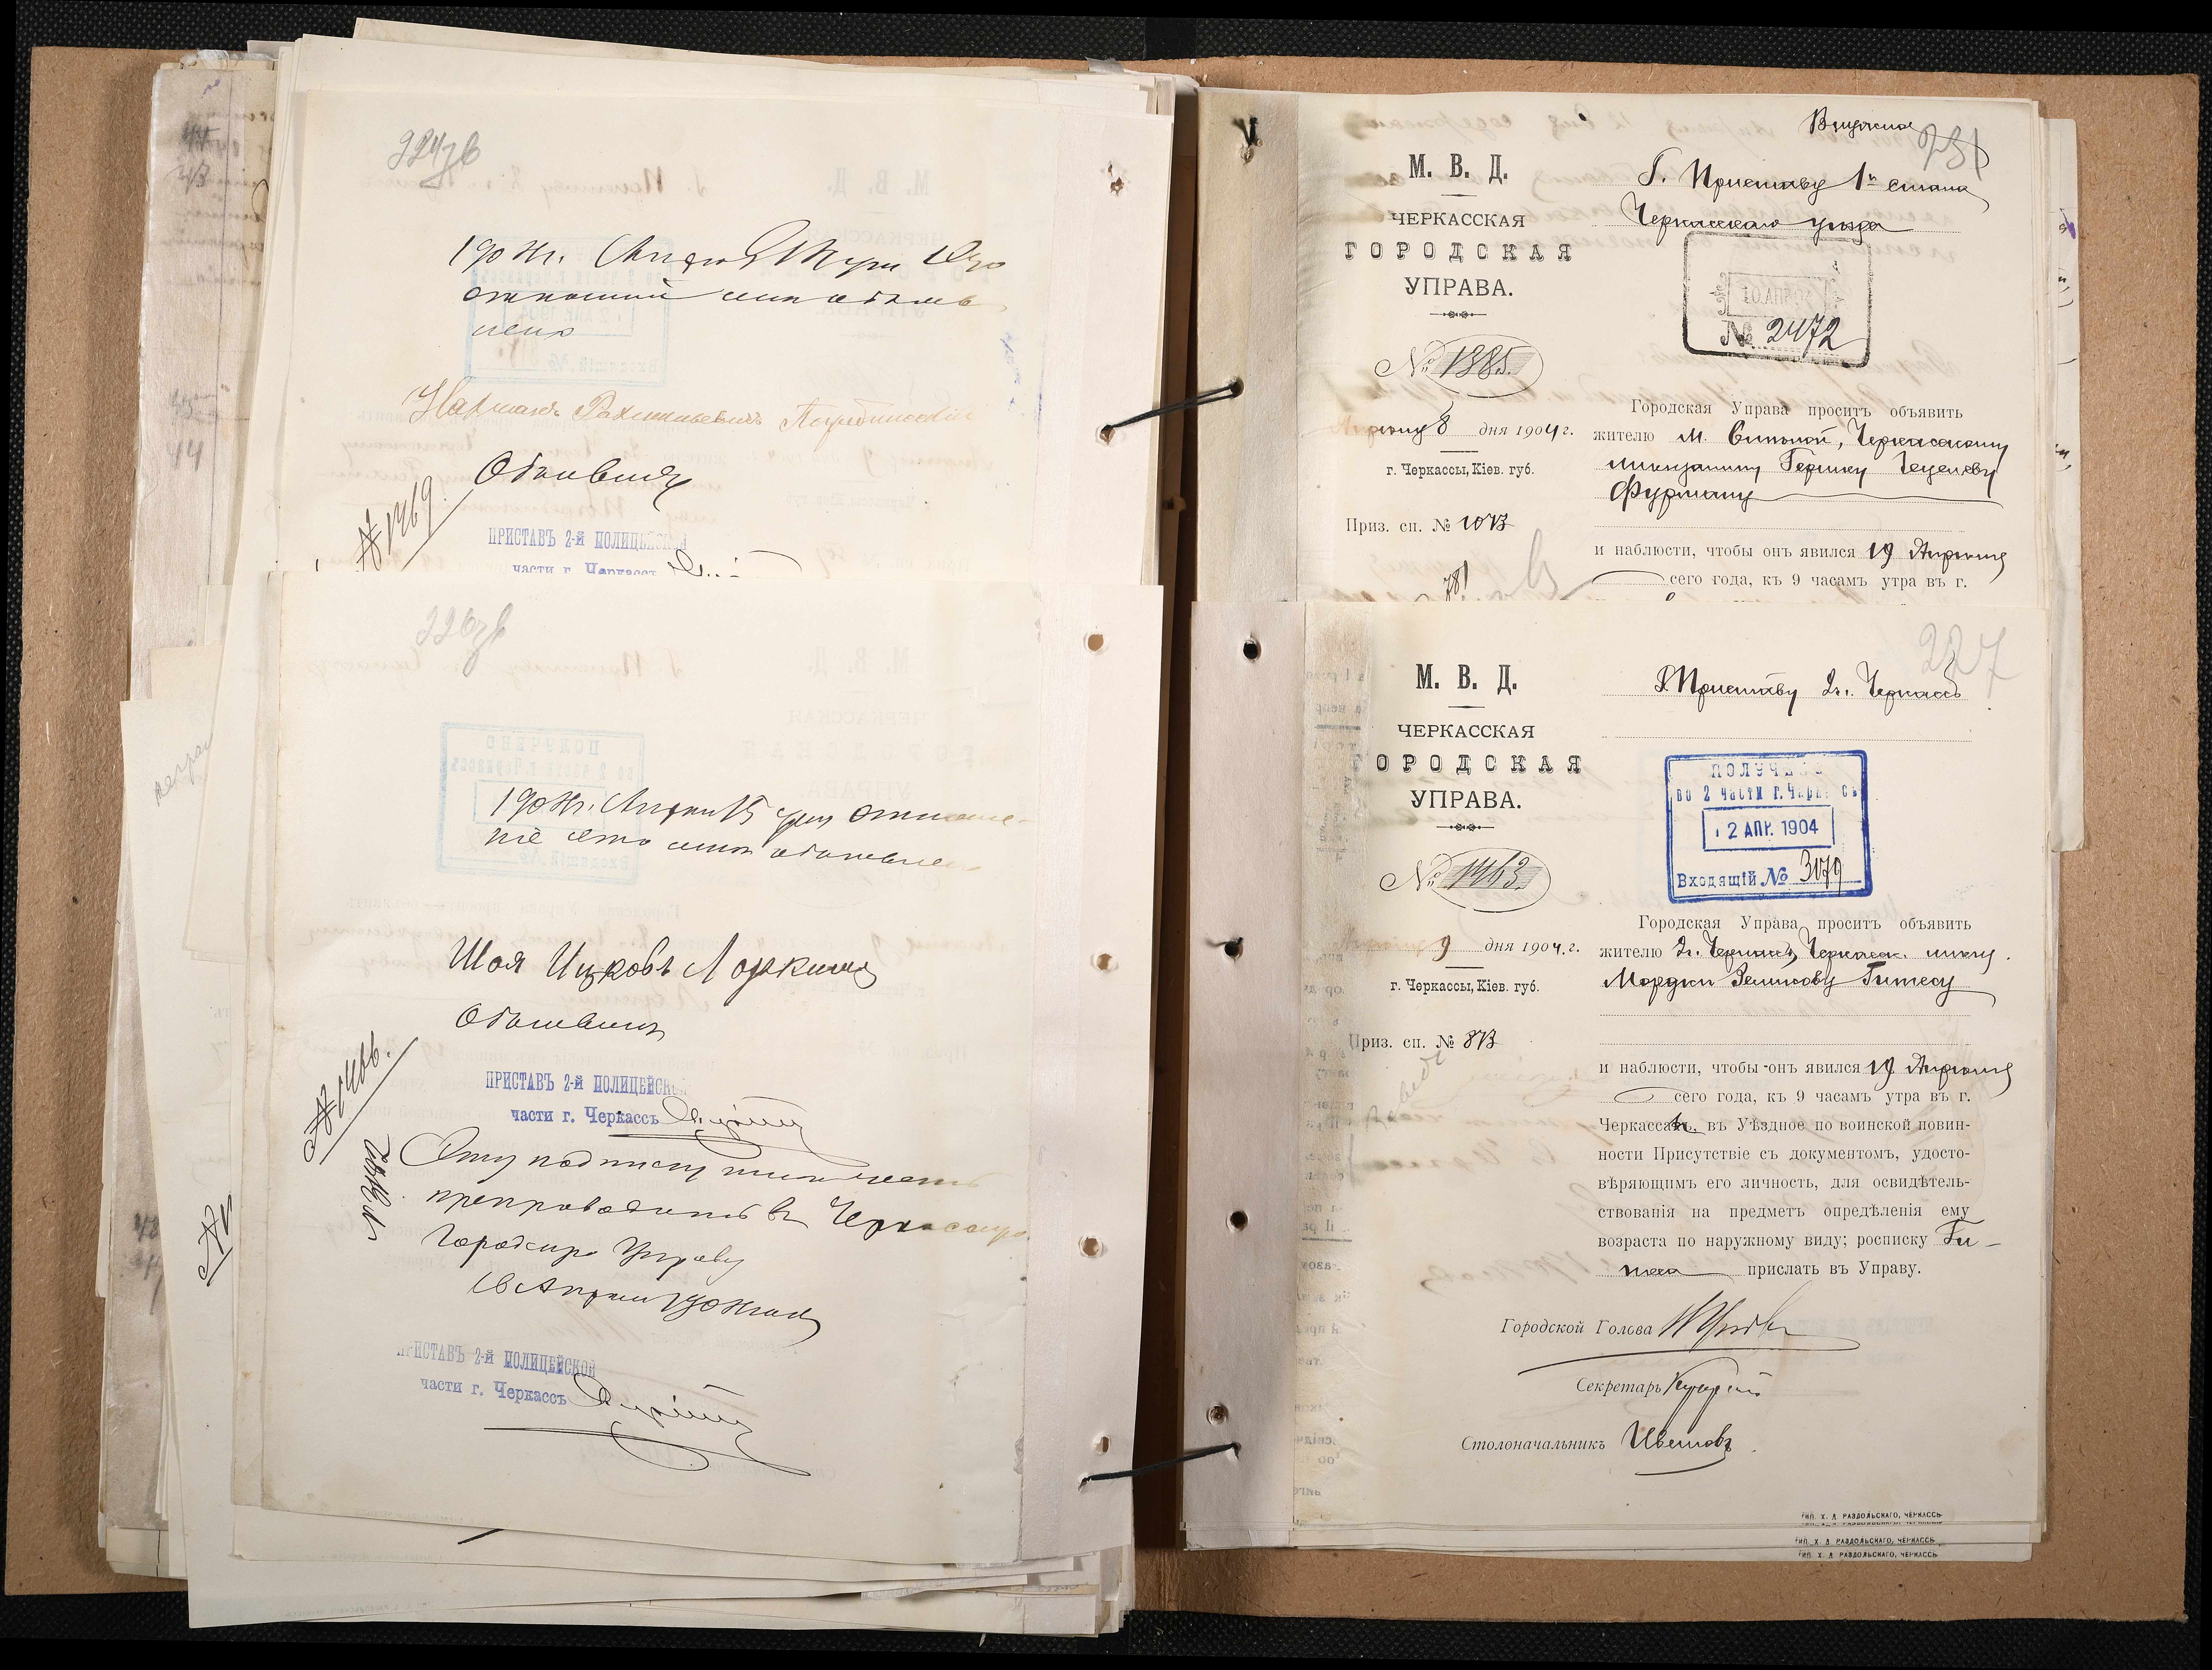 224 зв
1904 г. Апреля
отношение мне объявлено
Нахман Рахмильевич Погребисский
Объявил
№ 1469.
ПРИСТАВЪ 2-й ПОЛИЦЕЙСКОЙ
части г. Черкассъ
226 зв
1904 г. Апреля 15 дня отноше-
ніе это мне объявлено
Шоя Ицковъ Лоркина
Объявилъ
ПРИСТАВЪ 2-й ПОЛИЦЕЙСКОЙ
части г. Черкассъ
№ 1466.
Эту подписку
препроводить въ Черкасскую
Городскую Управу
16 Апреля 1904 года
ПРИСТАВЪ 2-й ПОЛИЦЕЙСКОЙ
части г. Черкассъ
231
М. В. Д.
ЧЕРКАССКАЯ
ГОРОДСКАЯ
УПРАВА.
№ 1385.
Апреля 8 дня 1904 г.
г. Черкассы, Кіев. губ.
Приз. сп. № 10 В
Г. Приставу 1го стана
Черкасскаго уезда
10. АПР 04
№ 2472
Городская Управа проситъ объявить
жителю м. Смелой, Черкасскому
мещанину Гершку Гецелеву
Фурману
и наблюсти, чтобы онъ явился 19 Апреля
сего года, къ 9 часамъ утра въ г.
227
М. В. Д.
ЧЕРКАССКАЯ
ГОРОДСКАЯ
УПРАВА.
№ 1463.
Апреля 9 дня 1904. г.
г. Черкассы, Кіев. губ.
Приз. сп. № 8 В
Г. Приставу 2 ч. Черкассъ
ПОЛУЧЕНО
во 2 части г. Черкассъ
12 АПР. 1904
Входящій № 3079
Городская Управа проситъ объявить
жителю г. Черкассъ, Черкасск. мещ.
Мордки Зеликову Гитесу
и наблюсти, чтобы онъ явился 19 Апреля
сего года, къ 9 часамъ утра въ г.
Черкассахъ, въ Уѣздное по воинской повин-
ности Присутствіе съ документомъ, удосто-
вѣряющимъ его личность, для освидѣтель-
ствованія на предметъ опредѣленія ему
возраста по наружному виду; росписку Ги-
теса прислать въ Управу.
Городской Голова
Секретарь
Столоначальникъ Цветковъ
ТИП. Х. Д. РАЗДОЛЬСКАГО, ЧЕРКАССЬ
ТИП. Х. Д. РАЗДОЛЬСКАГО, ЧЕРКАССЬ
ТИП. Х. Д. РАЗДОЛЬСКАГО, ЧЕРКАССЬ